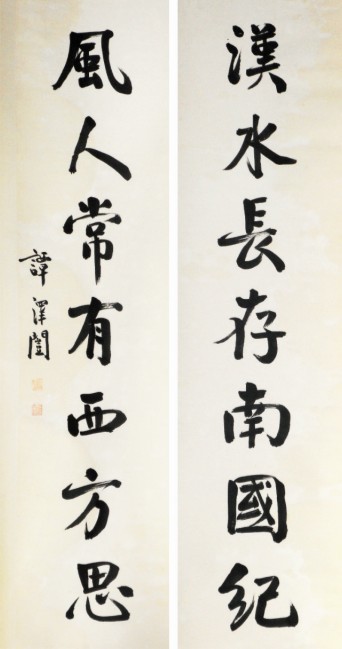 漢水長存南國紀
風人常有西方思
譚澤闓